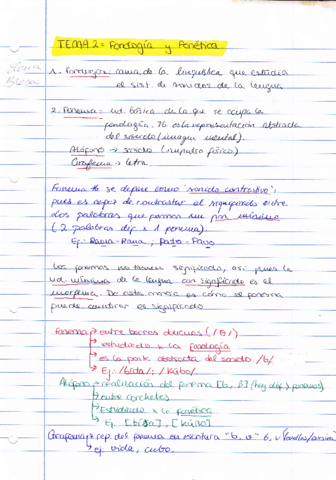 TEMA 2 = Fonología y Fonética
1. Fonología: rama de la lingüística que estudia
el sist. de sonidos de la lengua
2. Fonema = ud. básica de la que se ocupa la
fonología. Tb es la representación abstracta
del sonido (imagen mental).
Alófono → sonido (impulso físico)
Grafema → letra.
Fonema tb se define como "sonido contrastivo",
pues es capaz de contrastar el significado entre
dos palabras que forman un par mínimo
(2 palabras dif x 1 fonema).
Ej: Rama-Rana, Pato-Palo
Los fonemas no tienen significado, así pues la
ud. mínima de la lengua con significado es el
morfema. De esta manera es cómo el fonema
puede cambiar el significado.
Fonema → entre barras oblicuas (/θ/)
→ estudiado x la fonología
→ es la parte abstracta del sonido /b/
→ Ej: /bida/; /kúbo/.
Alófono → realización del fonema [b, β] (hay dif.) fonemas)
→ entre corchetes
→ Estudiado x la fonética
→ Ej: [bida], [kúβo].
Grafema → rep. del fonema en escritura "b, v"
→ ej. vida, cubo.